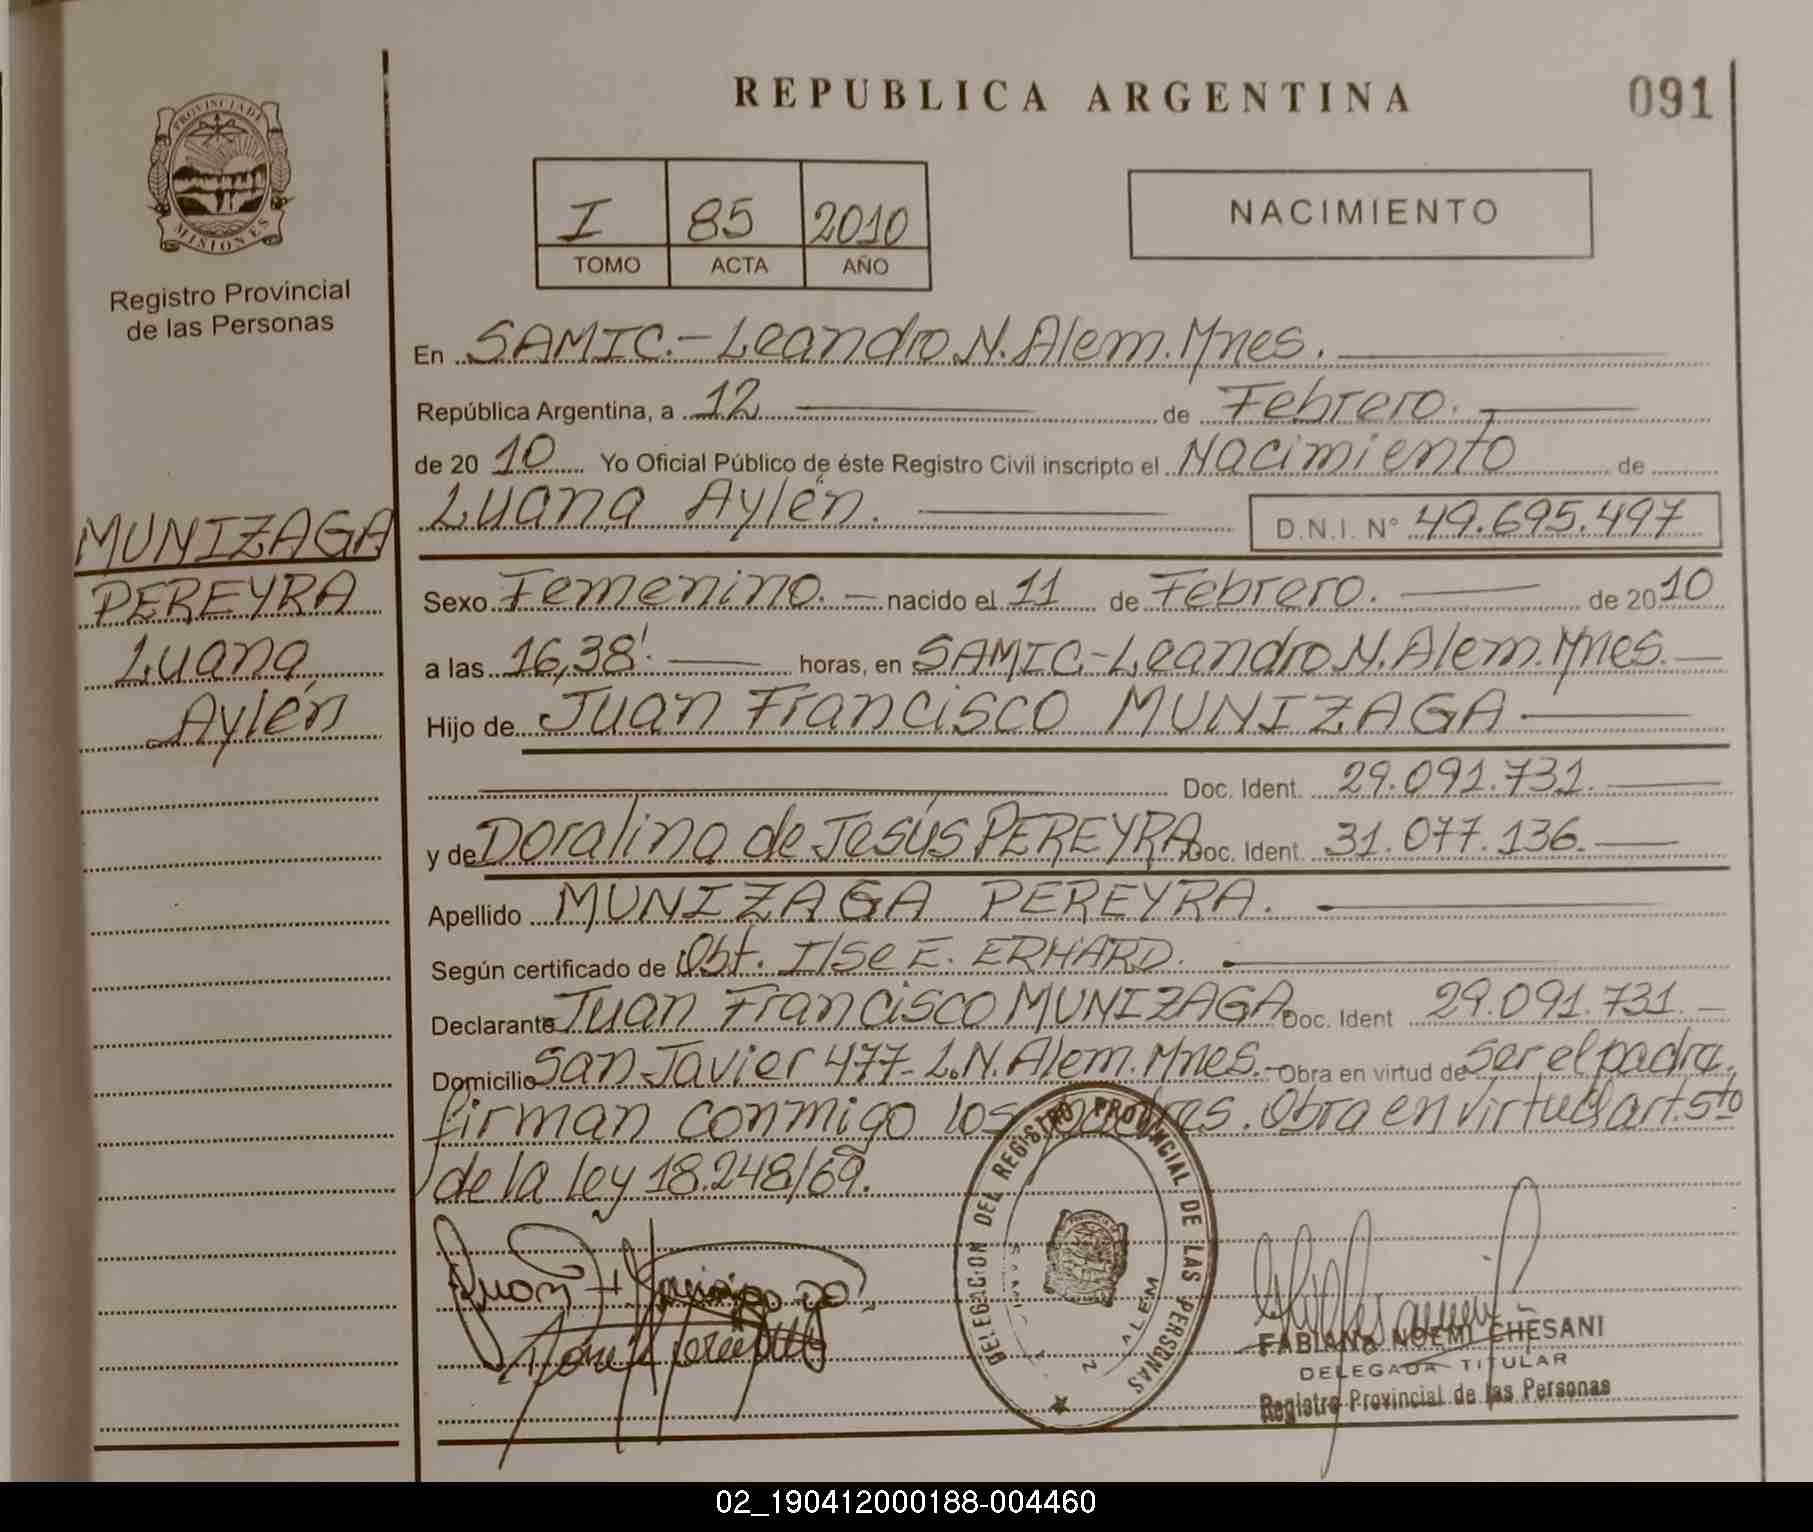 REPUBLICA ARGENTINA
091
PROVINCIA DE
MISIONES
Registro Provincial
de las Personas
I 85 2010
TOMO ACTA AÑO
NACIMIENTO
En SAMIC.-Leandro N. Alem. Mnes.
República Argentina, a 12 de Febrero.
de 2010 Yo Oficial Público de éste Registro Civil inscripto el Nacimiento de
Luana Aylén. D.N.I. Nº 49.695.497
MUNIZAGA
PEREYRA
Luana
Aylén
Sexo Femenino. nacido el 11 de Febrero. de 2010
a las 16,38'. horas, en SAMIC-Leandro N. Alem. Mnes.
Hijo de Juan Francisco MUNIZAGA
Doc. Ident. 29.091.731.
y de Doralina de Jesús PEREYRA Doc. Ident. 31.077.136.
Apellido MUNIZAGA PEREYRA.
Según certificado de Obt. Ilse E. ERHARD.
Declarante Juan Francisco MUNIZAGA. Doc. Ident 29.091.731.
Domicilio San Javier 477- L.N. Alem. Mnes.- Obra en virtud de ser el padre.
firman conmigo los padres. Obra en virtud art. 5to
de la ley 18.248/69.
DELEGACION DEL REGISTRO PROVINCIAL DE LAS PERSONAS
SAMIC L N ALEM
FABIANA NOEMI CHESANI
DELEGADA TITULAR
Registro Provincial de las Personas
02_190412000188-004460